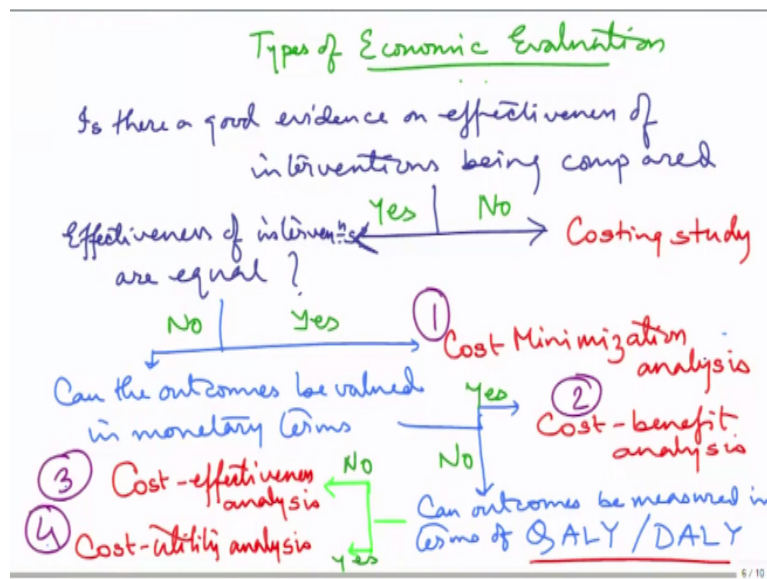 Types of Economic Evaluation
Is there a good evidence on effectiveness of
interventions being compared
Yes No
Effectiveness of interven
are equal ?
Costing study
No Yes
1
Cost Minimization
analysis
Can the outcomes be valued
in monetary terms
Yes
2
Cost-benefit
analysis
No
3
Cost-effectiveness
analysis
No
4
Cost-utility analysis
yes
Can outcomes be measured in
terms of QALY / DALY
6 / 10